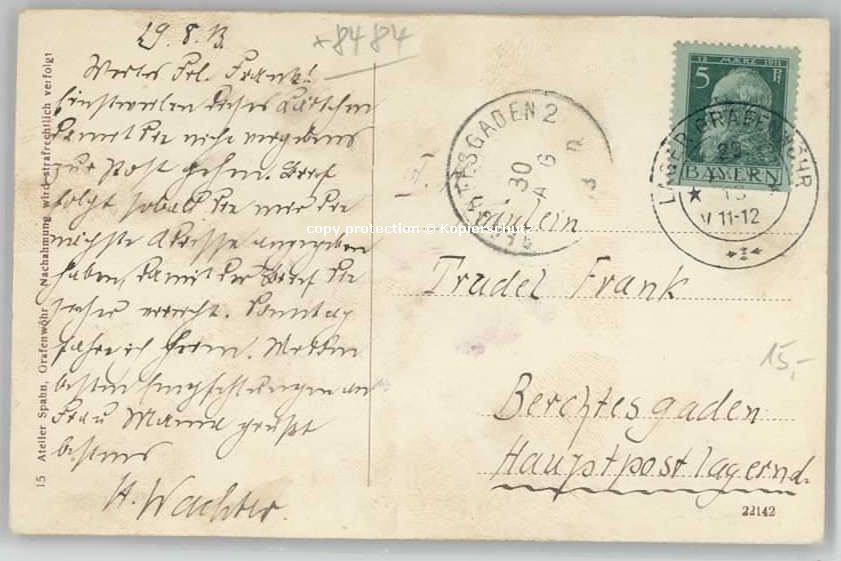 29.8.13.
*8484
Wertes Frl. Frank!
Einstweilen dieses Kärtchen
damit Sie nicht vergebens
zur Post gehn. Brief
folgt sobald Sie mir die
nächste Adresse angegeben
haben, damit der Brief Sie
sicher erreicht. Sonntag
fahre ich heim. Meine
besten Empfehlungen an
Frau Mama grüßt
bestens
H. Wachter.
15 Atelier Spahn, Grafenwöhr Nachahmung wird strafrechtlich verfolgt
12 MÄRZ 1911
5 Pf
BAYERN
LAGER GRAFENWÖHR
29
13
V 11-12
BERCHTESGADEN 2
30
AUG
13
copy protection © Kopierschutz
Fräulein
Trudel Frank
15,-
Berchtesgaden
Hauptpostlagernd.
22142